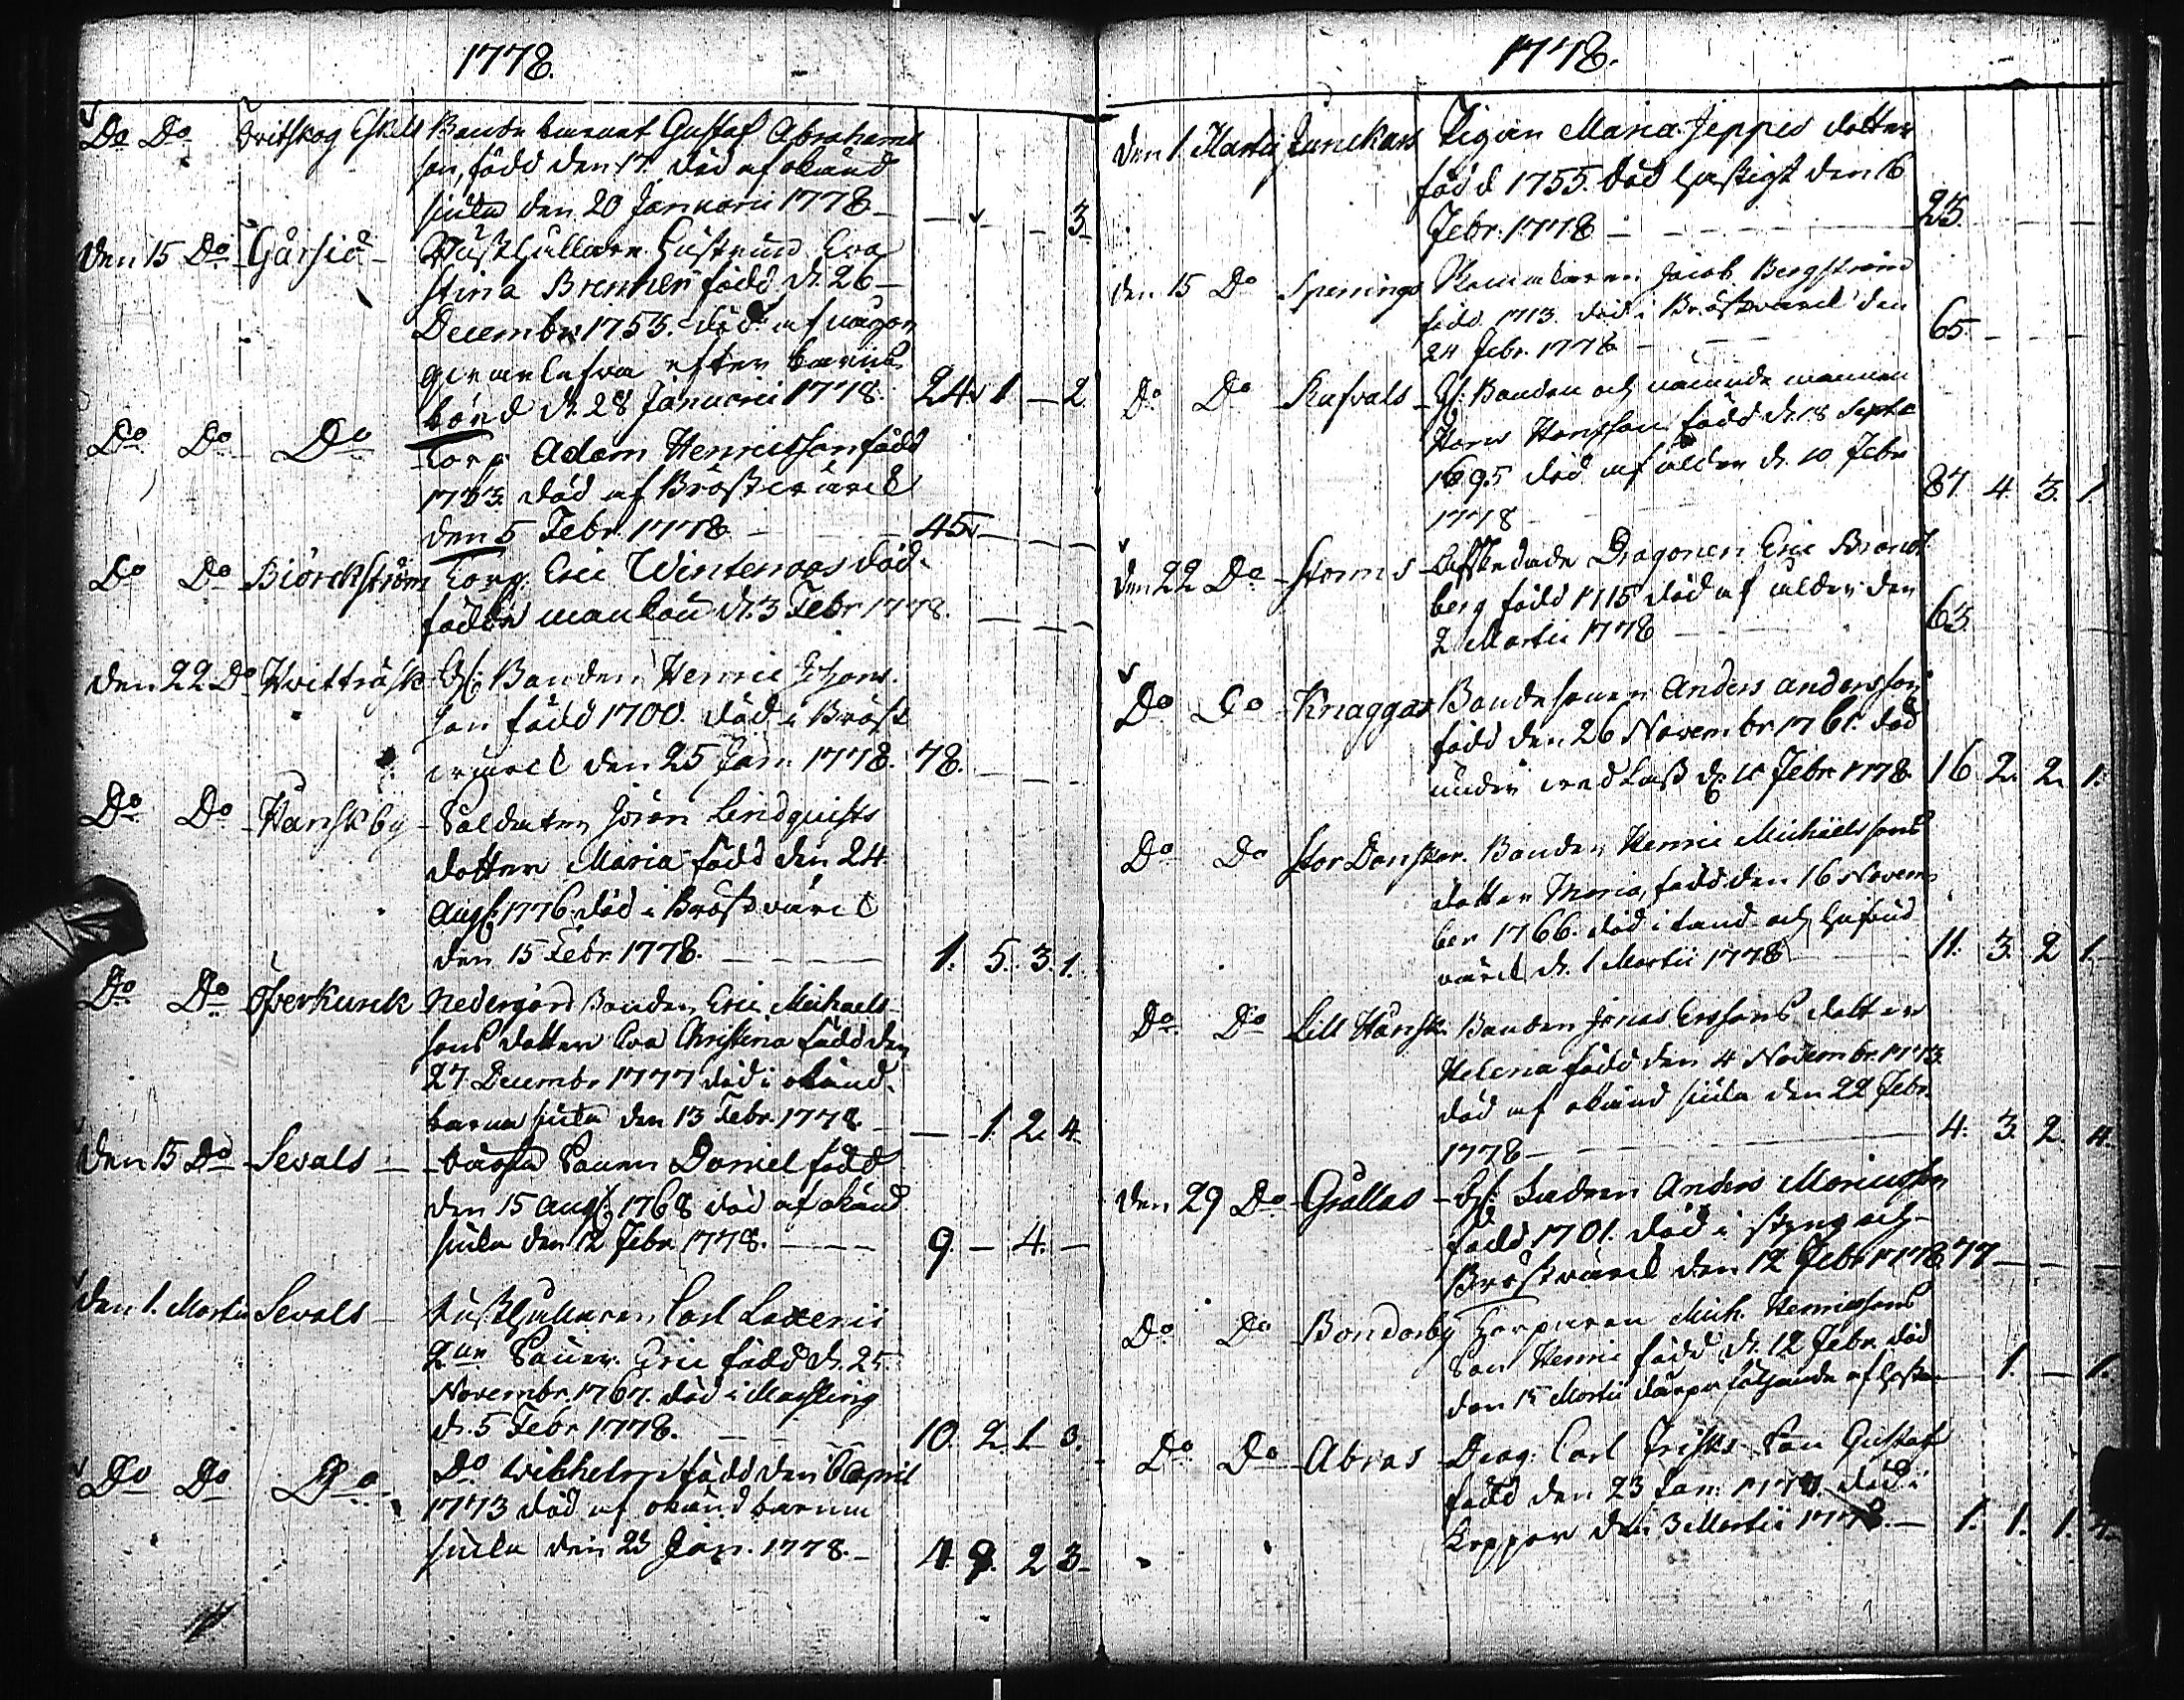 1778.
Do Do Evitskog Eskils Bonde barnet Gustaf Abrahams
son, född den 17. död af okänd
siuka den 20 Januarii 1778 — — — 3.
Den 15 Do Gårsiö Rusthållare Hustrun Eva
Stina Brenner född d. 26
Decembr. 1753. död af någon
efter barns
börd d. 28 Januarii 1778. 24. 1 — 2.
Do Do Do Torp. Adam Henricsson född
1733. död af Bröstwärck
den 5 Febr. 1778 — 45. — — —
Do Do Biörckström Torp. Eric Wintenoas död-
födde mankön d. 3 Febr. 1778. — — —
den 22 Do Hvitträsk Gl. Bonden Henric Johans-
son född 1700. död i Bröst
wärck den 25 Jan. 1778. 78. — — —
Do Do Hanskby Soldaten Jöran Lindquists
dotter Maria född den 24
Aug. 1776. död i Bröstwärck
den 15 Febr. 1778. — 1. 5. 3. 1.
Do Do Öfverkurck Nedergård Bonden Eric Michaels-
sons dotter Eva Christina född den
27 Decembr. 1777 död i okänd
barna siuka den 13 Febr. 1778. — 1. 2. 4.
den 15 Do Sevals — Sonen Daniel född
den 15 Aug. 1768 död af okänd
siuka den 12 Febr. 1778. — 9. — 4. —
den 1. Martii Sevals — Rusthållaren Carl Laxenii
Sonen Eric född d. 25
Novembr. 1767. död i Mässling
d. 5 Febr. 1778. — 10. 2. 1. 3.
Do Do Do Do Wilhelm född den 6 April
1773 död af okänd barna
siuka den 23 Jan. 1778. — 4. 9. 2 3.
1778.
den 1 Martii Junckars Pigan Maria Jeppes dotter
född 1755. död hastigt den 16
Febr. 1778 — 23. — — —
den 15 Do Spennings Jacob Bergström
född 1713. död i Bröstwärck den
24 Febr. 1778 — 65. — — —
Do Do Kafvals — Gl. Bonden och nämnde mannen
Hans Hansson född d. 18 Sept.
1695 död af ålder d. 10 Febr.
1778 — 87. 4. 3. 1
den 22 Do Storms — Afskedade Dragonen Eric Brand
berg född 1715 död af ålder den
2 Martii 1778 — 63.
Do Do Knaggas Bondesonen Anders Andersson
född den 26 Novembr. 1761. död
under wedlass d. 10 Febr. 1778. 16 2. 2. 1.
Do Do Stor Donsker. Bonden Henric Michaelssons
dotter Maria, född den 16 Novem-
ber 1766. död i tand och hufvud
värck d. 1 Martii 1778 — 11. 3. 2 1.
Do Do Lill Hanske Bonden Jonas Erssons dotter
Helena född den 4 Novembr. 1773
död af okänd siuka den 22 Febr.
1778 — 4. 3. 2. 4.
den 29 Do Grållas — Gl. Anders Mariæsson
född 1701. död i styng och
Bröstwärck den 12 Febr. 1778 77 — — —
Do Do Bondarby Torparen Mich. Henricssons
Son Henric född d. 12 Febr. död
den 15 Martii därpå följande af hosta — 1. — 1.
Do Do Abras — Drag. Carl Frisks Son Gustaf
född den 23 Jan. 1777. död i
koppor den 3 Martii 1778. — 1. 1. 1. 4.